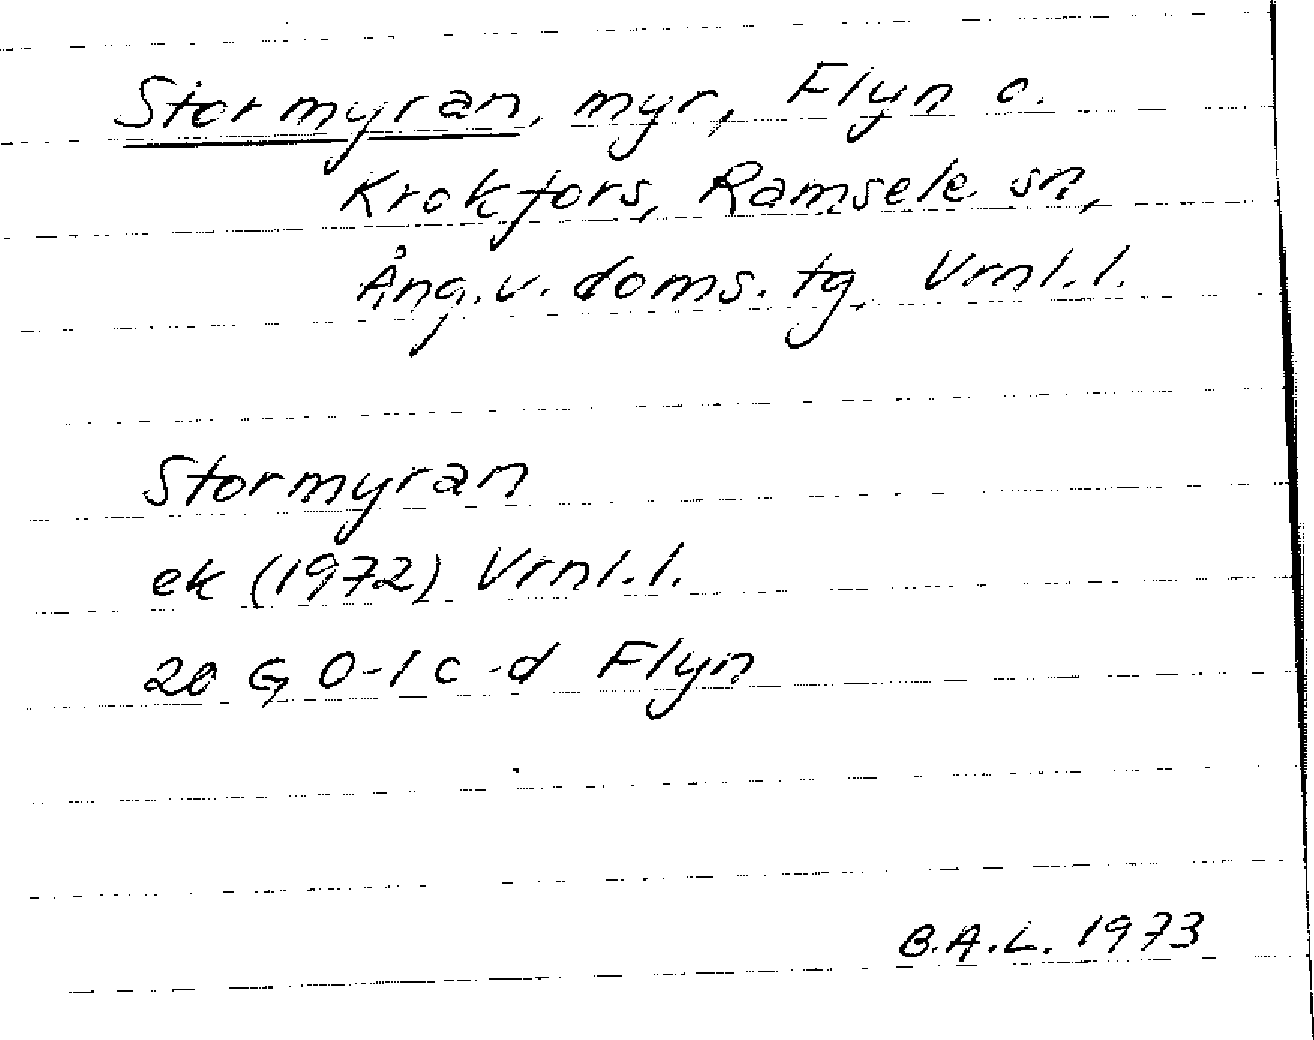 Stormyran, myr, Flyn o.
Krokfors, Ramsele sn,
Ång.v. doms. tg, Vrnl.l.
Stormyran
ek (1972) Vrnl.l.
20 G 0-1 c-d Flyn
B.A.L. 1973